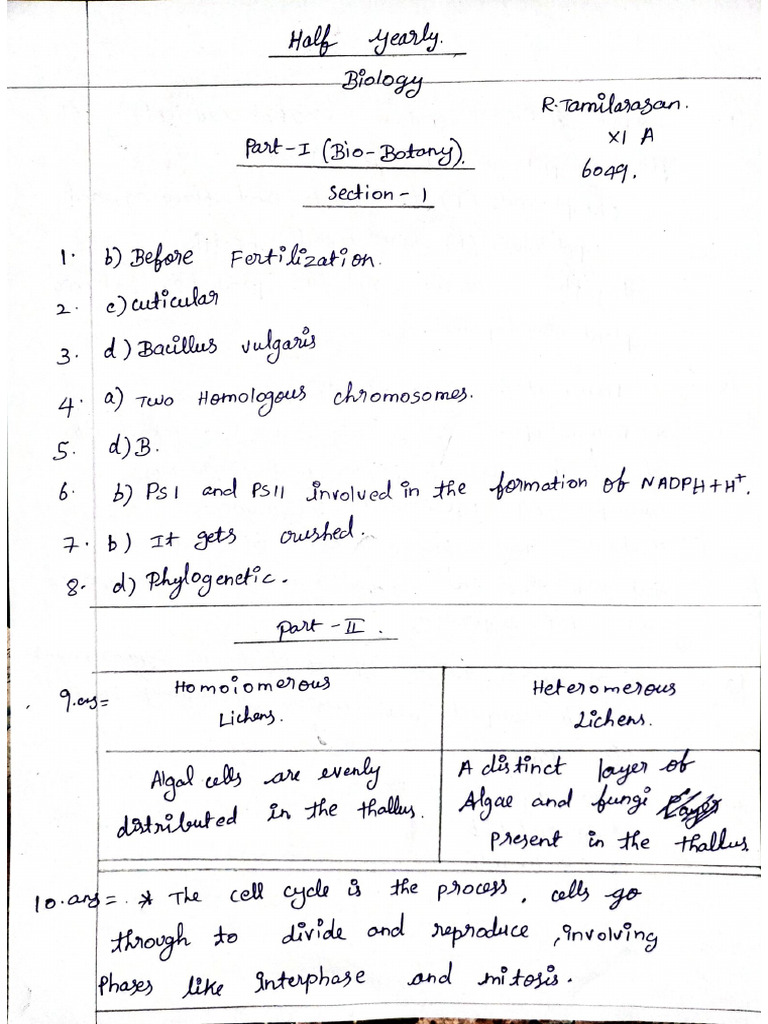 Half Yearly.
Biology
R.Tamilarasan.
XI A
6049.
Part-I (Bio-Botany).
Section - 1
1. b) Before Fertilization.
2. c) cuticular
3. d) Bacillus vulgaris
4. a) Two Homologous chromosomes.
5. d) B.
6. b) PSI and PSII involved in the formation of NADPH+H⁺.
7. b) It gets crushed.
8. d) Phylogenetic.
Part - II.
9.ans= Homoiomerous
Lichens.
Heteromerous
Lichens.
Algal cells are evenly
distributed in the thallus.
A distinct layer of
Algae and fungi
present in the thallus
10.ans= * The cell cycle is the process, cells go
through to divide and reproduce, involving
Phases like Interphase and mitosis.